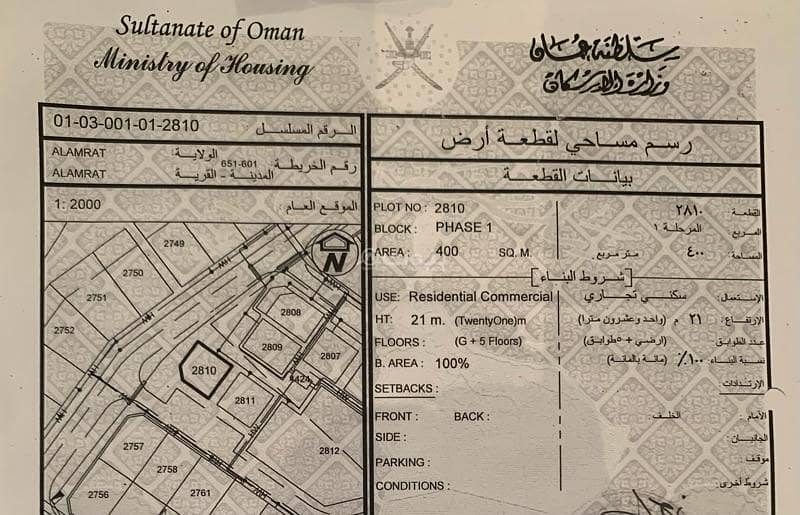 Sultanate of Oman
Ministry of Housing
سلطنة عمان
وزارة الإسكان
01-03-001-01-2810 الرقم المسلسل
ALAMRAT الولاية:
651-601 رقم الخريطة
ALAMRAT المدينة - القرية
1: 2000 الموقع العام:
2749
2750
2751
2752
N
2808
2809
2807
2810
2811
2812
2757
2758
2756
2761
رسم مساحي لقطعة أرض
بيانات القطعة
PLOT NO : 2810 ٢٨١٠ القطعة
BLOCK : PHASE 1 المرحلة ١ المربع
AREA : 400 SQ. M. متر مربع. ٤٠٠ المساحة:
شروط البناء
USE: Residential Commercial سكني تجاري الاستعمال:
HT: 21 m. (TwentyOne)m ٢١ م (واحد وعشرون مترا) الارتفاع:
FLOORS : (G + 5 Floors) (ارضي + ٥طوابق) عدد الطوابق
B. AREA : 100% ١٠٠٪ (مائة بالمائة) نسبة البناء:
SETBACKS : الإرتدادات:
FRONT : BACK : الخلف: الأمام:
SIDE : الجانبان:
PARKING : موقف:
CONDITIONS : شروط أخرى: